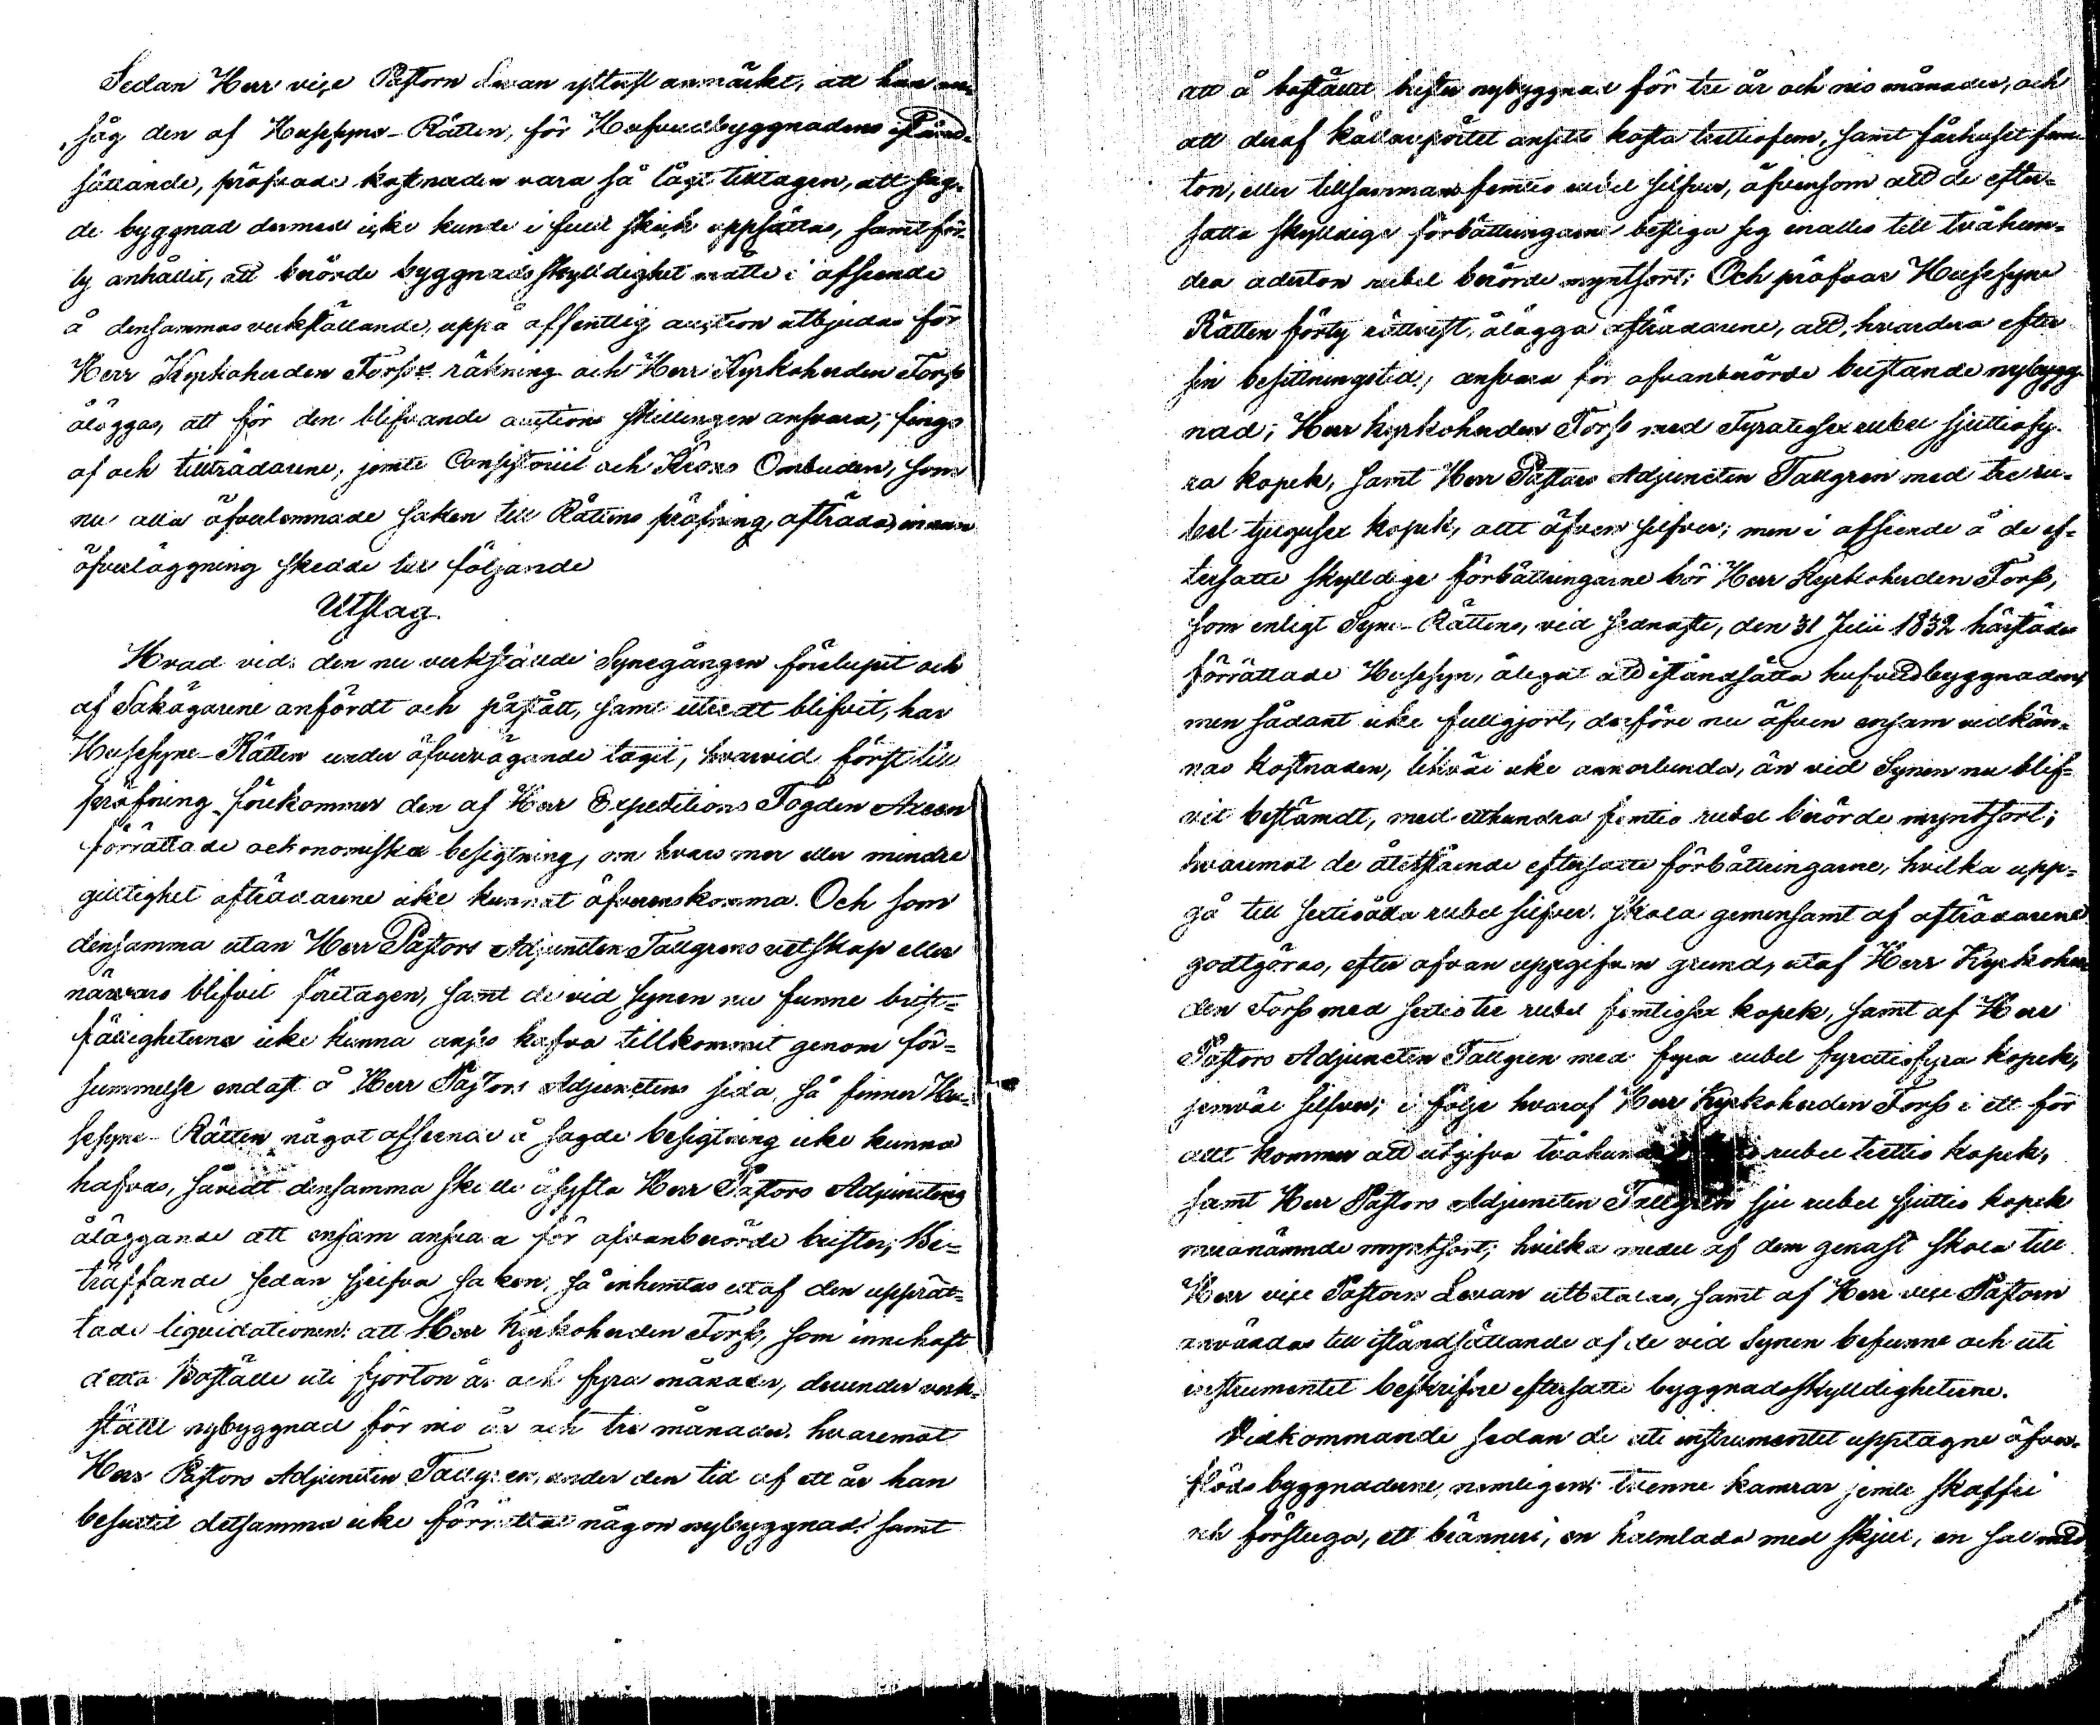 Sedan Herr vice Pastorn Levan ytterst anmärkt, att han an-
såg den af Husesyns-Rätten, för Hufvudbyggnadens istånd-
sättande, pröfvade kostnaden vara så lågt tilltagen, att sag-
de byggnad dermed icke kunde i fullt skick uppsättas, samt för-
ty anhållit, att berörde byggnads skylldighet måtte i afseende
å densammas verkställande, uppå offentlig auction utbjudas för
Herr Kyrkoherden Forss's räkning och Herr Kyrkoherden Forss
åläggas, att för den blifvande auctions skillingen ansvara; fingo
af och tillträdarene, jemte Consistorii och Krons Ombuden, som
nu alla öfverlemnade saken till Rättens pröfning, afträda, innan
öfverläggning skedde till följande
Utslag.
Hvad vid den nu verkställde Synegången förelupit och
af Sakägarene anfördt och påstått, samt utredt blifvit, har
Husesyne-Rätten under öfvervägande tagit, hvarvid först till
pröfning förekommer den af Herr Expeditions Fogden
förrättade oekonomiska besigtning, om hvars mer eller mindre
gilltighet afträdarene icke kunnat öfverenskomma. Och som
densamma utan Herr Pastors Adjuncten Tallgrens vetskap eller
närvaro blifvit företagen, samt de vid synen nu funne brist-
fälligheterne icke kunna anses hafva tillkommit genom för-
summelse endast å Herr Pastors Adjunctens sida, så finner Hu-
sesyne-Rätten något afseende å sagde besigtning icke kunna
hafvas, såvidt densamma skulle åsyfta Herr Pastors Adjunctens
åläggande att ensam ansvara för ofvanberörde brister; Be-
träffande sedan sjelfva saken, så inhemtas utaf den upprät-
tade liqvidationen: att Herr Kyrkoherden Forss, som innehaft
detta Boställe uti fjorton år och fyra månader, derunder verk-
ställt nybyggnad för nio år och tre månader, hvaremot
Herr Pastors Adjuncten Tallgren, under den tid af ett år han
besuttit detsamma icke förrättat någon nybyggnad, samt
att å bostället brister nybyggnad för tre år och nio månader, och
att deraf källarpörtet ansetts kosta trettiofem, samt fårhuset fem-
ton, eller tillsammans femtio rubel silfver, äfvensom att de efter-
satta skylldiga förbättringarne bestiga sig inalles till tvåhun-
dra aderton rubel berörde myntsort; Och pröfvar Husesyne
Rätten förty rättvist, ålägga afträdarene, att, hvardera efter
sin besittningstid, ansvara för ofvanberörde bristande nybygg-
nad; Herr Kyrkoherden Forss med Fyratiosex rubel sjuttiofy-
ra kopek, samt Herr Pastors Adjuncten Tallgren med tre ru-
bel tjugusex kopek, allt äfven silfver; men i afseende å de ef-
tersatte skylldige förbättringarne bör Herr Kyrkoherden Forss,
som enligt Syne-Rättens, vid sednaste, den 31 Julii 1832 härstädes
förrättade Husesyn, ålegat att iståndsätta hufvudbyggnaden,
men sådant icke fullgjort, derföre nu äfven ensam vidkän-
nas kostnaden, likväl icke annorlunda, än vid Synen nu blif-
vit bestämdt, med etthundra femtio rubel berörde myntsort;
hvaremot de återstående eftersatte förbättringarne, hvilka upp-
gå till sextioåtta rubel silfver, skola gemensamt af afträdarene
godtgöras, efter ofvan uppgifven grund, utaf Herr Kyrkoher-
den Forss med sextiotre rubel femtiosex kopek, samt af Herr
Pastors Adjuncten Tallgren med fyra rubel fyratiofyra kopek,
jemväl silfver; i följe hvaraf Herr Kyrkoherden Forss i ett för
allt kommer att utgifva rubel trettio kopek,
samt Herr Pastors Adjuncten Tallgren sju rubel sjuttio kopek
meranämnde myntsort; hvilka medel af dem genast skola till
Herr vice Pastorn Levan utbetalas, samt af Herr vice Pastorn
användas till iståndsättande af de vid Synen befunne och uti
instrumentet beskrifne eftersatte byggnadsskylldigheterne.
Vidkommande sedan de uti instrumentet upptagne öfver-
flöds byggnaderne, nemligen: tvenne kamrar jemte skafferi
och förstuga, ett bränneri, en halmlada med skjul, en sal med